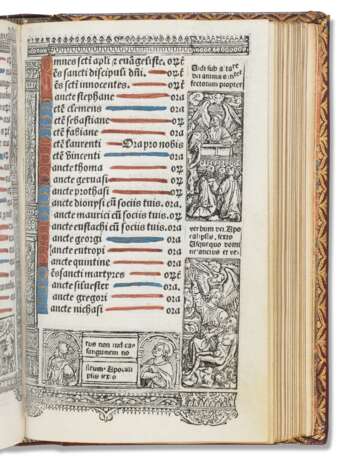 mnes scti apli ⁊ euãgeliste. orẽ
ẽs sancti discipuli dñi. orẽ
ẽs scti innocentes. orẽ
ancte stephane ora
ctẽ clemens ora
ctẽ sebastiane ora
ctẽ fabiane ora
ctẽ laurenti Ora pro nobis
ctẽ vincenti ora
ancte thoma ora
ancte geruasi ora
ancte prothasi ora
ancte dionysi cũ sociis tuis. orẽ
ancte maurici cũ sociis tuis. orẽ
ancte eustachi cũ sociis tuis. orẽ
ancte georgi ora
ancte eutropi ora
ancte quintine ora
ẽs sancti martyres orẽ
ancte siluester ora
ancte gregori ora
ancte nichasi ora
fectorum propter
verbum dei Apo
calipsis, sexto
Usquequo domi
ne
tus non iudicas
sanguinem no
strum. Apocali
psis